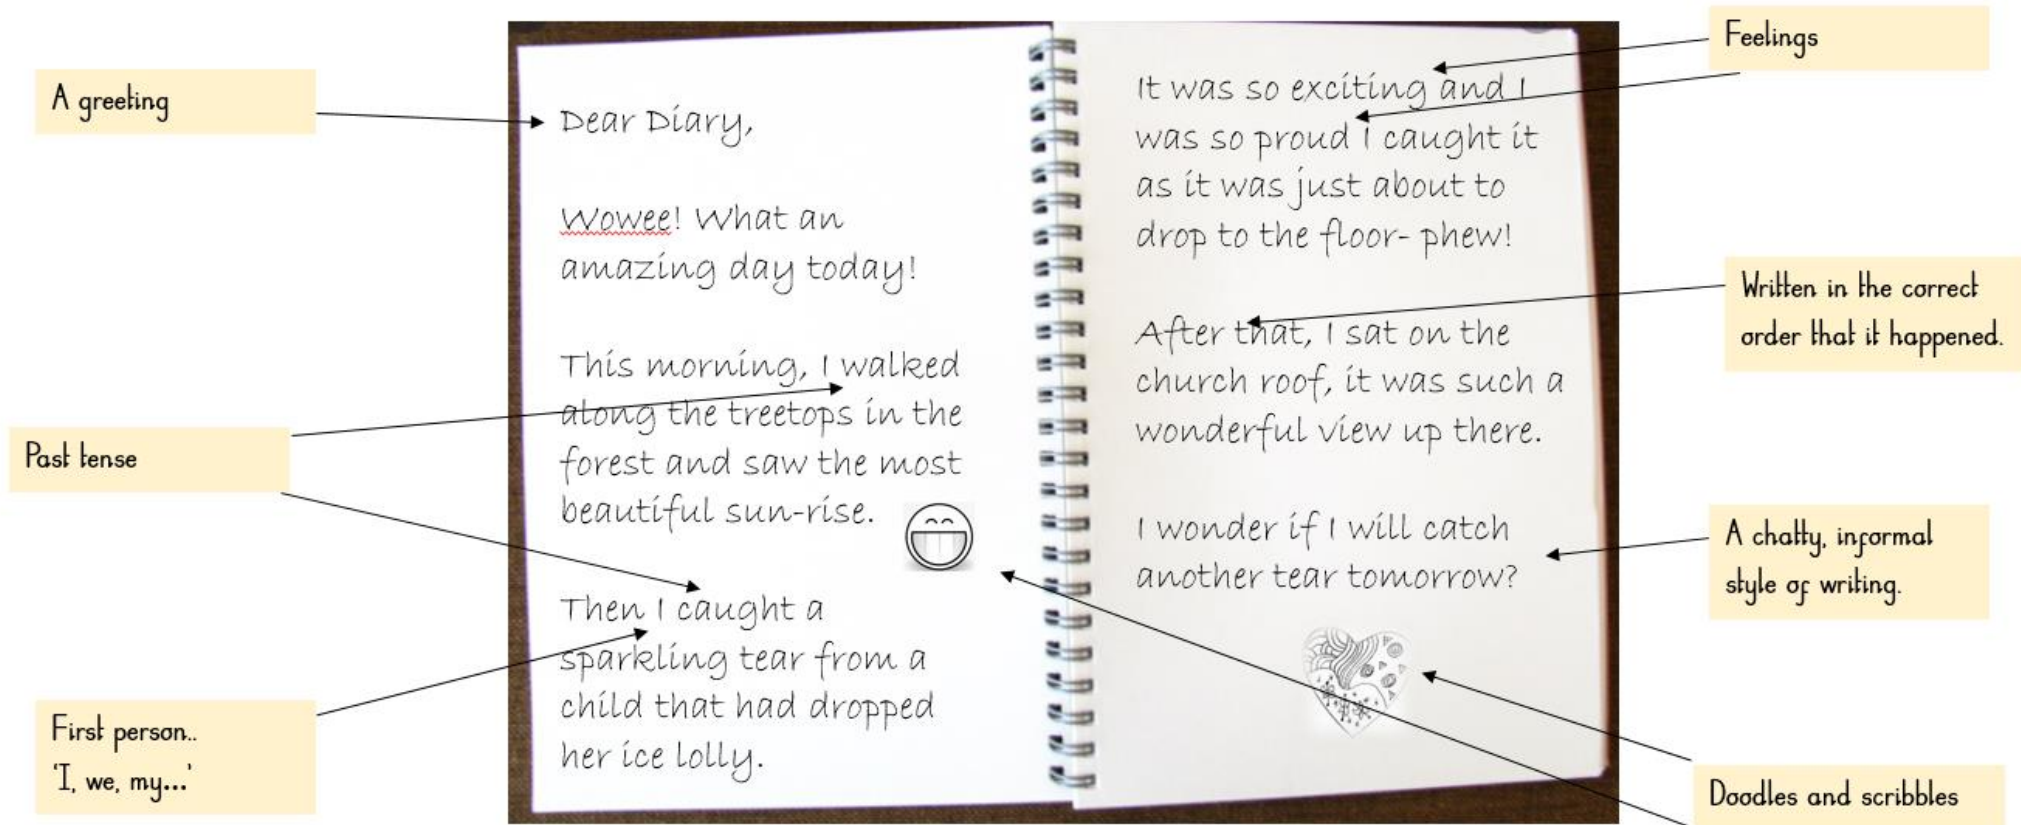 A greeting
Past tense
First person..
'I, we, my...'
Dear Diary,
Wowee! What an
amazing day today!
This morning, I walked
along the treetops in the
forest and saw the most
beautiful sun-rise.
Then I caught a
sparkling tear from a
child that had dropped
her ice lolly.
It was so exciting and I
was so proud I caught it
as it was just about to
drop to the floor- phew!
After that, I sat on the
church roof, it was such a
wonderful view up there.
I wonder if I will catch
another tear tomorrow?
Feelings
Written in the correct
order that it happened.
A chatty, informal
style of writing.
Doodles and scribbles